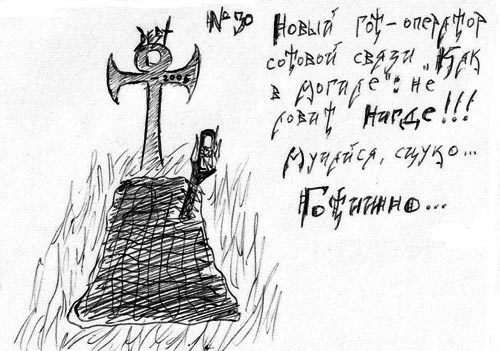 №30
Новый гот-оператор
сотовой связи „Как
в могиле": не
ловит нигде!!!
Мучайся, сцуко...
Готишно...
2006